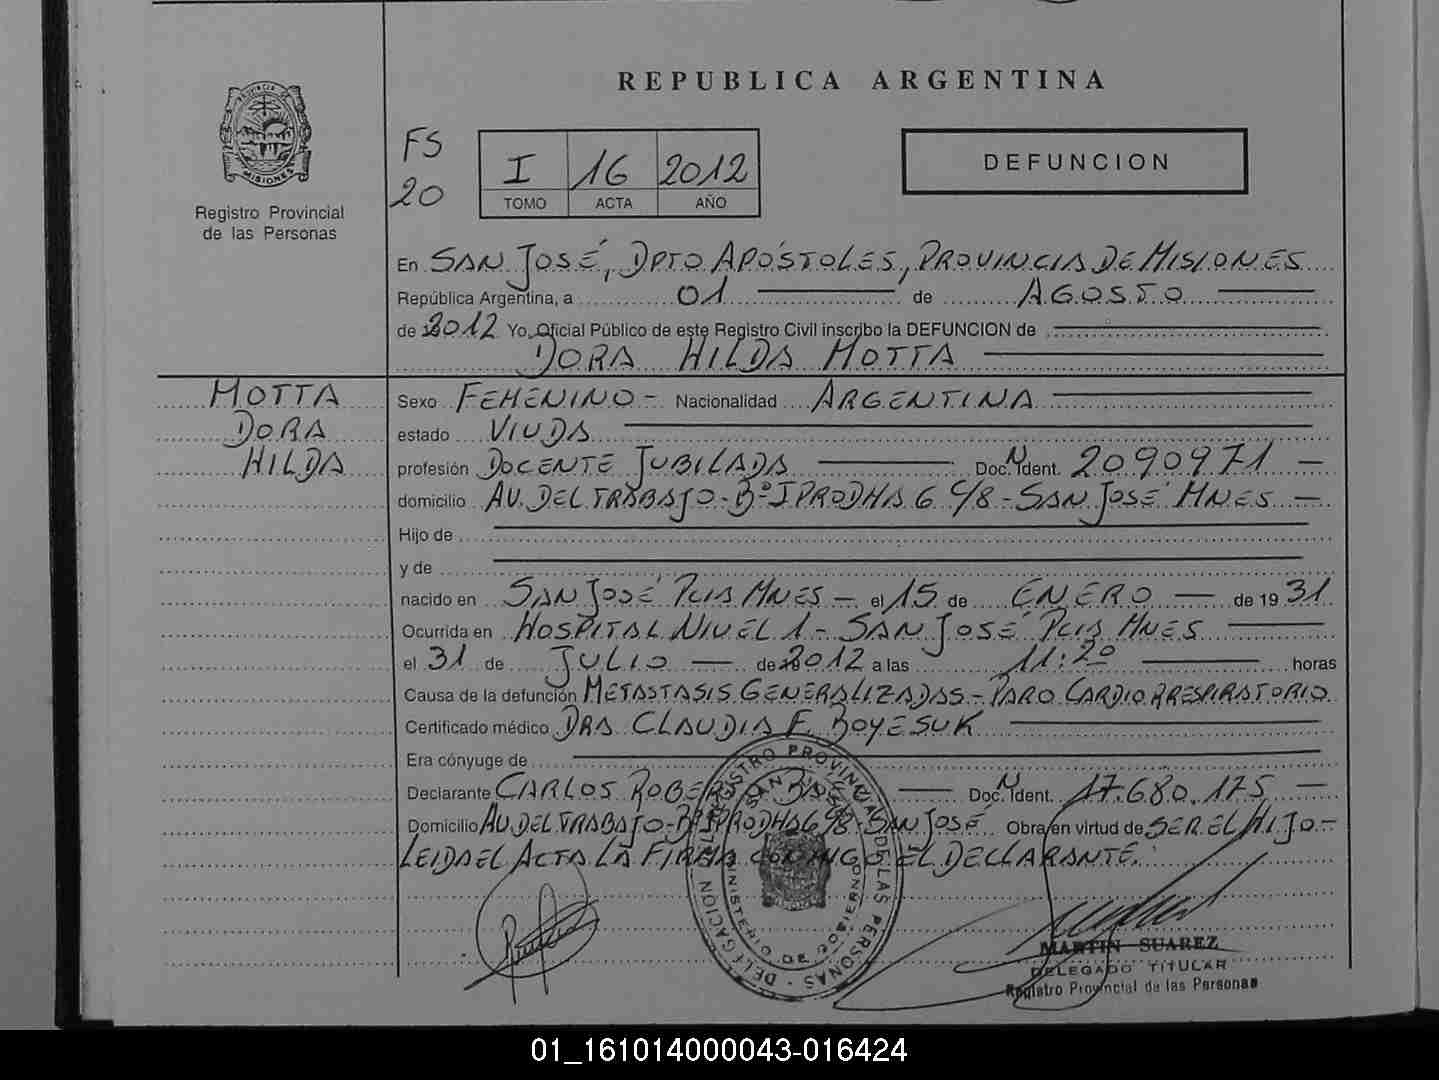 REPUBLICA ARGENTINA
PROVINCIA DE MISIONES
Registro Provincial
de las Personas
FS
20
I 16 2012
TOMO ACTA AÑO
DEFUNCION
En SAN JOSÉ, DPTO APÓSTOLES, PROVINCIA DE MISIONES
República Argentina, a 01 de AGOSTO
de 2012 Yo, Oficial Público de este Registro Civil inscribo la DEFUNCION de
DORA HILDA MOTTA
MOTTA
DORA
HILDA
Sexo FEMENINO - Nacionalidad ARGENTINA
estado VIUDA
profesión DOCENTE JUBILADA Doc. N Ident. 2090971 -
domicilio AV. DEL TRABAJO - Bº IPRODHA 6 C/8 - SAN JOSÉ MNES -
Hijo de
y de
nacido en SAN JOSÉ PCIA MNES - el 15 de ENERO - de 19 31
Ocurrida en HOSPITAL NIVEL 1 - SAN JOSÉ PCIA MNES
el 31 de JULIO - de 2012 a las 11:20 horas
Causa de la defunción METASTASIS GENERALIZADAS - PARO CARDIORRESPIRATORIO
Certificado médico DRA CLAUDIA F. BOYESUK
Era cónyuge de
Declarante CARLOS Doc. N Ident. 17.680.175 -
Domicilio AV. DEL TRABAJO - Bº IPRODHA 6 C/8 - SAN JOSÉ Obra en virtud de SER EL HIJO -
LEIDA EL ACTA LA FIRMA CONMIGO EL DECLARANTE.
REGISTRO PROVINCIAL DE LAS PERSONAS - DELEGACION
SAN JOSE
MINISTERIO DE GOBIERNO
MARTIN SUAREZ
DELEGADO TITULAR
Registro Provincial de las Personas
01_161014000043-016424